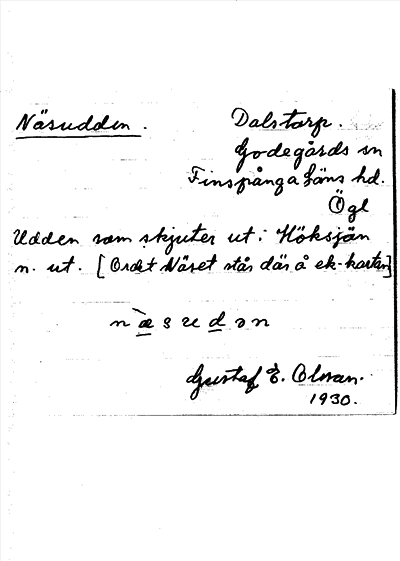 Näsudden. Dalstorp.
Godegårds sn
Finspånga läns hd.
Ögl
Udden som skjuter ut i Höksjön
n. ut. [Ordet Näset står där å ek-kartan]
næsudən
Gustaf E. Olsson.
1930.